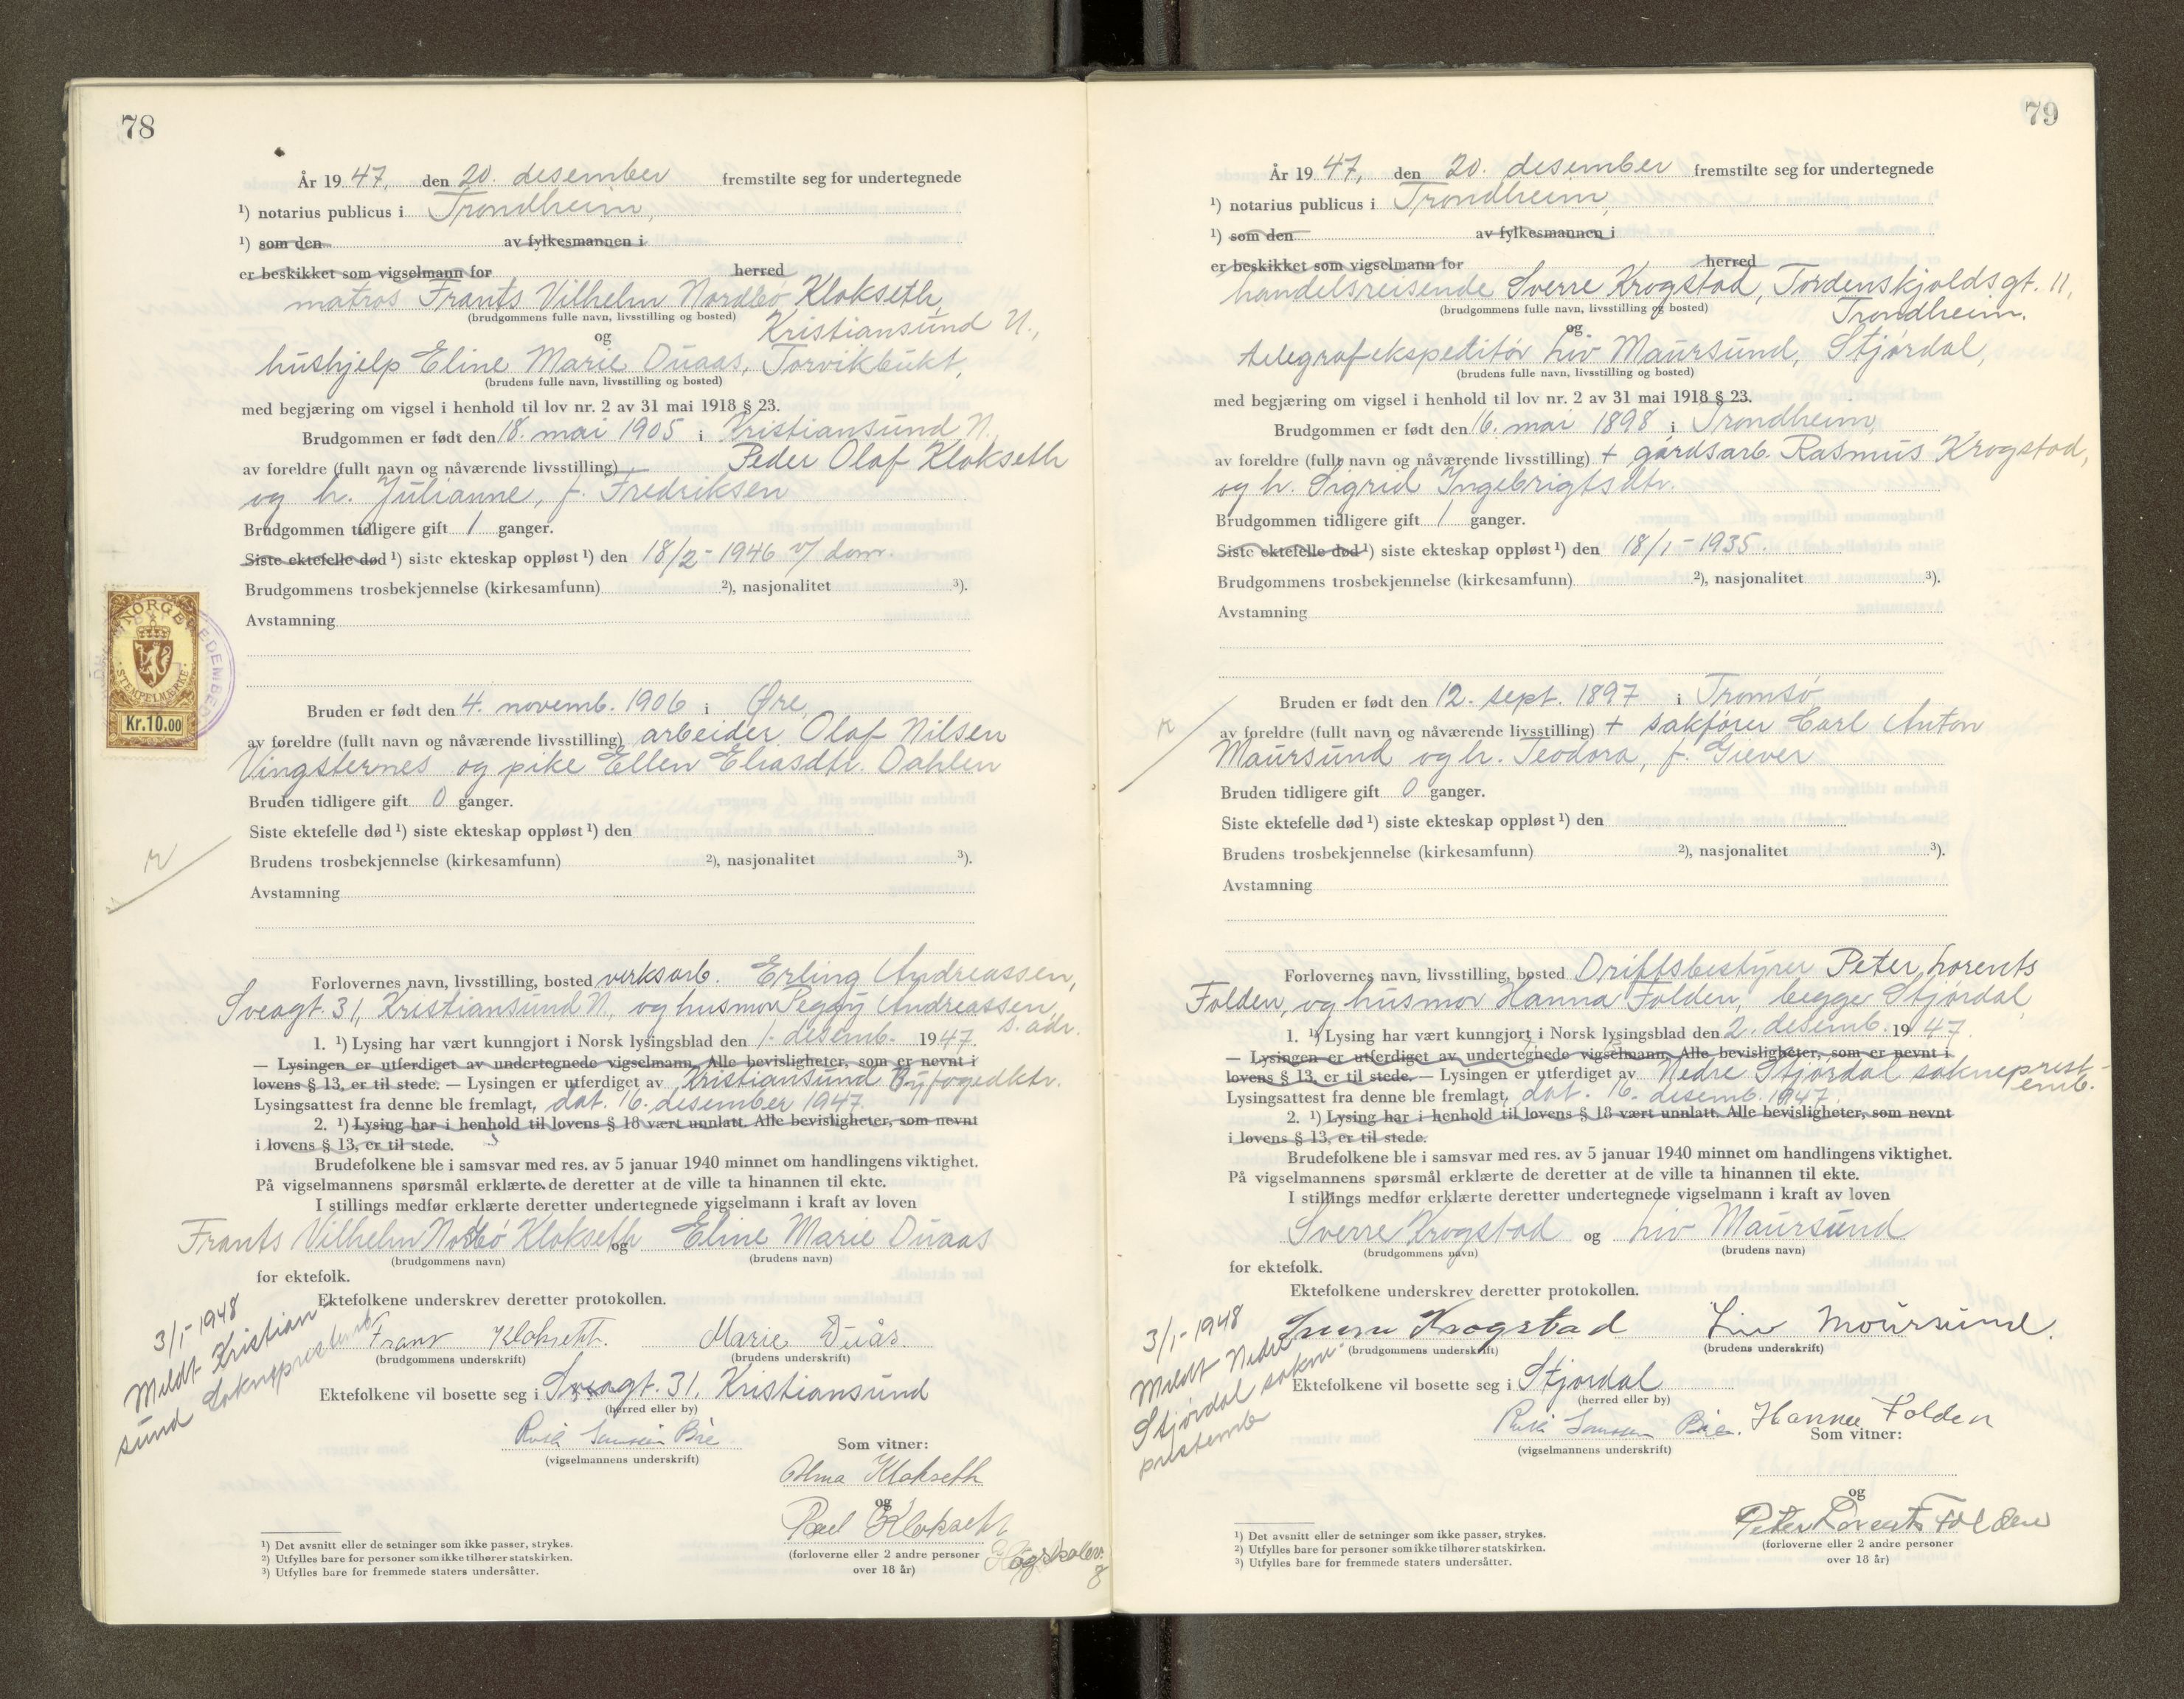 78
År 1947, den 20. desember fremstilte seg for undertegnede
¹) notarius publicus i Trondheim,
¹) som den av fylkesmannen i
er beskikket som vigselmann for herred
matros Frants Vilhelm Nordbø Klokseth,
(brudgommens fulle navn, livsstilling og bosted)
Kristiansund N.,
og
hushjelp Eline Marie Duaas, Torvikbukt,
(brudens fulle navn, livsstilling og bosted)
med begjæring om vigsel i henhold til lov nr. 2 av 31 mai 1918 § 23.
Brudgommen er født den 18. mai 1905 i Kristiansund N.
av foreldre (fullt navn og nåværende livsstilling) Peder Olaf Klokseth
og h. Julianne, f. Fredriksen
Brudgommen tidligere gift 1 ganger.
Siste ektefelle død ¹) siste ekteskap oppløst ¹) den 18/2-1946 v/ dom.
Brudgommens trosbekjennelse (kirkesamfunn) ²), nasjonalitet ³).
Avstamning
NORGE
STEMPELMERKE
Kr.10.00
Bruden er født den 4. novemb. 1906 i Øre,
av foreldre (fullt navn og nåværende livsstilling) arbeider Olaf Nilsen
Vingsternes og pike Ellen Eliasdtr. Dahlen
Bruden tidligere gift 0 ganger.
Siste ektefelle død ¹) siste ekteskap oppløst ¹) den
Brudens trosbekjennelse (kirkesamfunn) ²), nasjonalitet ³).
Avstamning
Forlovernes navn, livsstilling, bosted verksarb. Erling Andreassen,
Sveagt. 31, Kristiansund N., og husmor Peggy Andreassen,
s. adr.
1. ¹) Lysing har vært kunngjort i Norsk lysingsblad den 1. desemb. 1947.
— Lysingen er utferdiget av undertegnede vigselmann. Alle bevisligheter, som er nevnt i
lovens § 13, er til stede. — Lysingen er utferdiget av Kristiansund Byfogedktr.
Lysingsattest fra denne ble fremlagt, dat. 16. desember 1947.
2. ¹) Lysing har i henhold til lovens § 18 vært unnlatt. Alle bevisligheter, som nevnt
i lovens § 13, er til stede.
Brudefolkene ble i samsvar med res. av 5 januar 1940 minnet om handlingens viktighet.
På vigselmannens spørsmål erklærte de deretter at de ville ta hinannen til ekte.
I stillings medfør erklærte deretter undertegnede vigselmann i kraft av loven
Frants Vilhelm Nordbø Klokseth og Eline Marie Duaas
(brudgommens navn) (brudens navn)
for ektefolk.
Ektefolkene underskrev deretter protokollen.
3/1-1948
Meldt Kristian-
sund Sokneprestemb.
Frants Klokseth. Marie Duås.
(brudgommens underskrift) (brudens underskrift)
Ektefolkene vil bosette seg i Sveagt. 31, Kristiansund
(herred eller by)
(vigselmannens underskrift)
Som vitner:
Alma Klokseth
og
Klokseth
(forloverne eller 2 andre personer
over 18 år)
¹) Det avsnitt eller de setninger som ikke passer, strykes.
²) Utfylles bare for personer som ikke tilhører statskirken.
³) Utfylles bare for fremmede staters undersåtter.
79
År 1947, den 20. desember fremstilte seg for undertegnede
¹) notarius publicus i Trondheim,
¹) som den av fylkesmannen i
er beskikket som vigselmann for herred
handelsreisende Sverre Krogstad, Tordenskjoldsgt. 11,
(brudgommens fulle navn, livsstilling og bosted)
Trondheim.
og
telegrafekspeditør Liv Maursund, Stjørdal,
(brudens fulle navn, livsstilling og bosted)
med begjæring om vigsel i henhold til lov nr. 2 av 31 mai 1918 § 23.
Brudgommen er født den 16. mai 1898 i Trondheim,
av foreldre (fullt navn og nåværende livsstilling) + gårdsarb. Rasmus Krogstad,
og h. Sigrid Ingebrigtsdtr.
Brudgommen tidligere gift 1 ganger.
Siste ektefelle død ¹) siste ekteskap oppløst ¹) den 18/1-1935.
Brudgommens trosbekjennelse (kirkesamfunn) ²), nasjonalitet ³).
Avstamning
Bruden er født den 12. sept. 1897 i Tromsø
av foreldre (fullt navn og nåværende livsstilling) + sakfører Carl Anton
Maursund og h. Teodora, f. Giever
Bruden tidligere gift 0 ganger.
Siste ektefelle død ¹) siste ekteskap oppløst ¹) den
Brudens trosbekjennelse (kirkesamfunn) ²), nasjonalitet ³).
Avstamning
Forlovernes navn, livsstilling, bosted Driftsbestyrer Peter Lorents
Folden, og husmor Hanna Folden, begge Stjørdal,
1. ¹) Lysing har vært kunngjort i Norsk lysingsblad den 2. desemb. 1947.
— Lysingen er utferdiget av undertegnede vigselmann. Alle bevisligheter, som er nevnt i
lovens § 13, er til stede. — Lysingen er utferdiget av Nedre Stjørdal sokneprest-
emb.
Lysingsattest fra denne ble fremlagt, dat. 16. desemb. 1947.
2. ¹) Lysing har i henhold til lovens § 18 vært unnlatt. Alle bevisligheter, som nevnt
i lovens § 13, er til stede.
Brudefolkene ble i samsvar med res. av 5 januar 1940 minnet om handlingens viktighet.
På vigselmannens spørsmål erklærte de deretter at de ville ta hinannen til ekte.
I stillings medfør erklærte deretter undertegnede vigselmann i kraft av loven
Sverre Krogstad og Liv Maursund
(brudgommens navn) (brudens navn)
for ektefolk.
Ektefolkene underskrev deretter protokollen.
3/1-1948
Meldt Nedre
Stjørdal sokne-
prestemb
Sverre Krogstad Liv Moursund.
(brudgommens underskrift) (brudens underskrift)
Ektefolkene vil bosette seg i Stjørdal
(herred eller by)
Hanna Folden
(vigselmannens underskrift)
Som vitner:
og
Peter Lorents Folden
(forloverne eller 2 andre personer
over 18 år)
¹) Det avsnitt eller de setninger som ikke passer, strykes.
²) Utfylles bare for personer som ikke tilhører statskirken.
³) Utfylles bare for fremmede staters undersåtter.